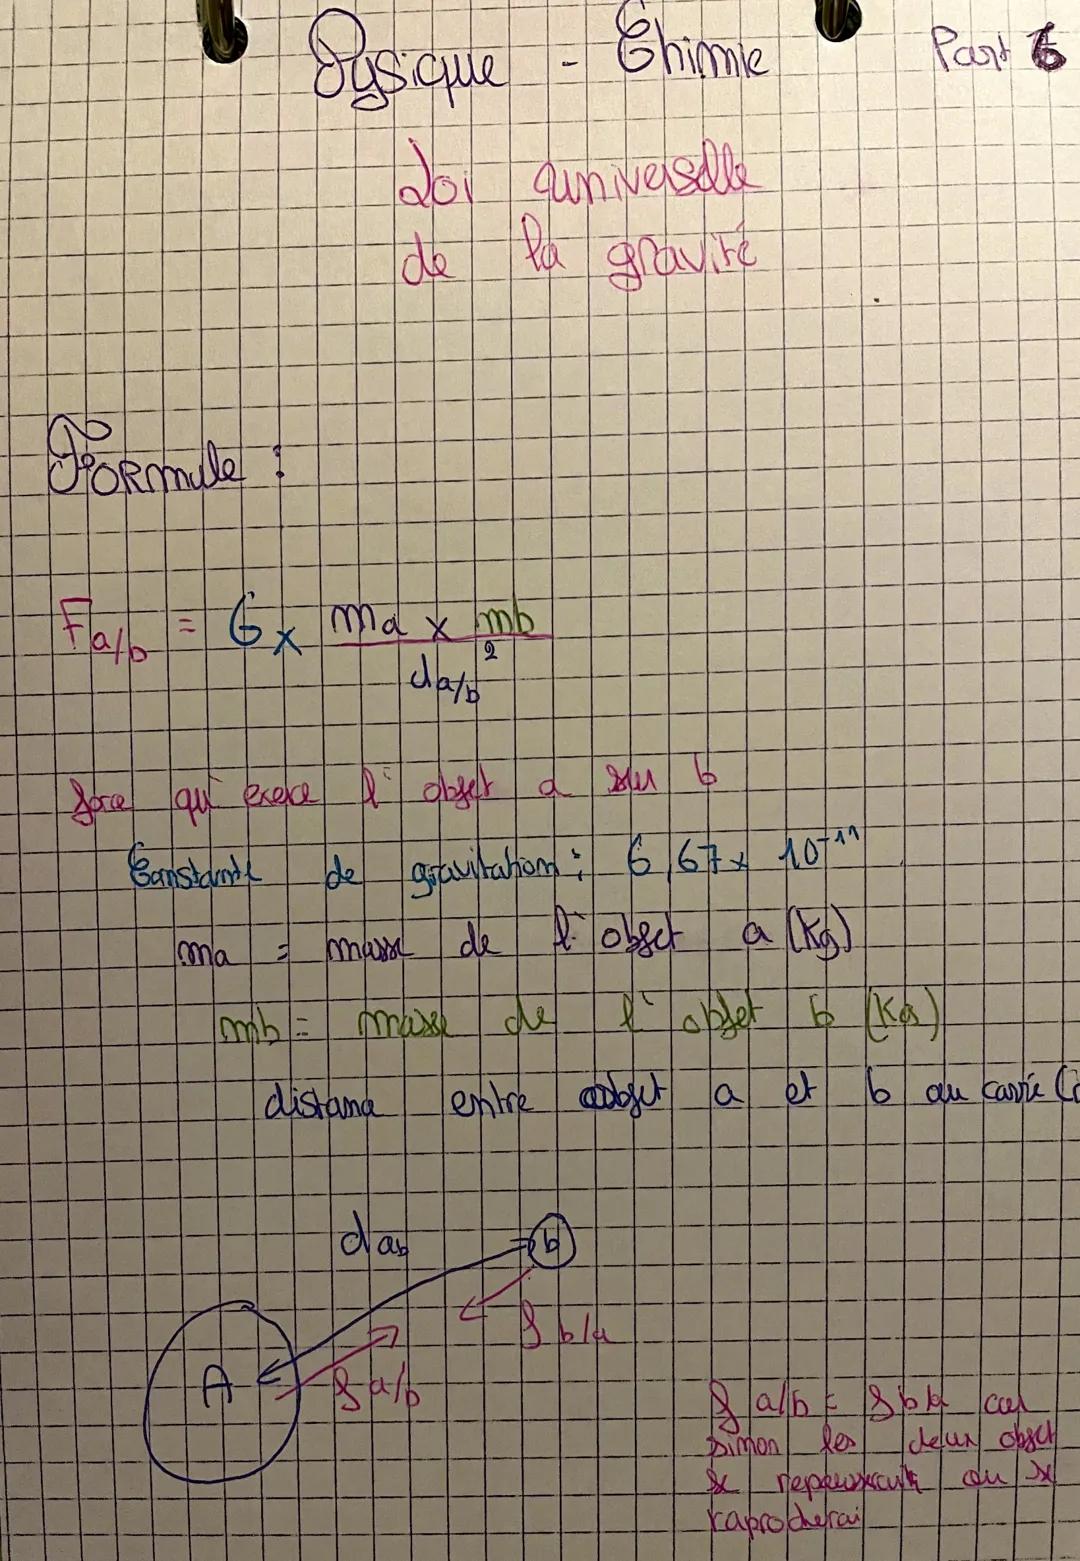 Pysique - Chimie Part 6
Loi universelle
de la gravité
Formule :
Fa/b = G x ma x mb
da/b²
force qu'exerce l'objet a sur b
Constante de gravitation : 6,67 x 10⁻¹¹
ma = masse de l'objet a (Kg)
mb = masse de l'objet b (Kg)
distance entre objet a et b au carré
dab
b
f b/a
A
f a/b
f a/b = f b/a car
sinon les deux objet
se ou se
raprocherai